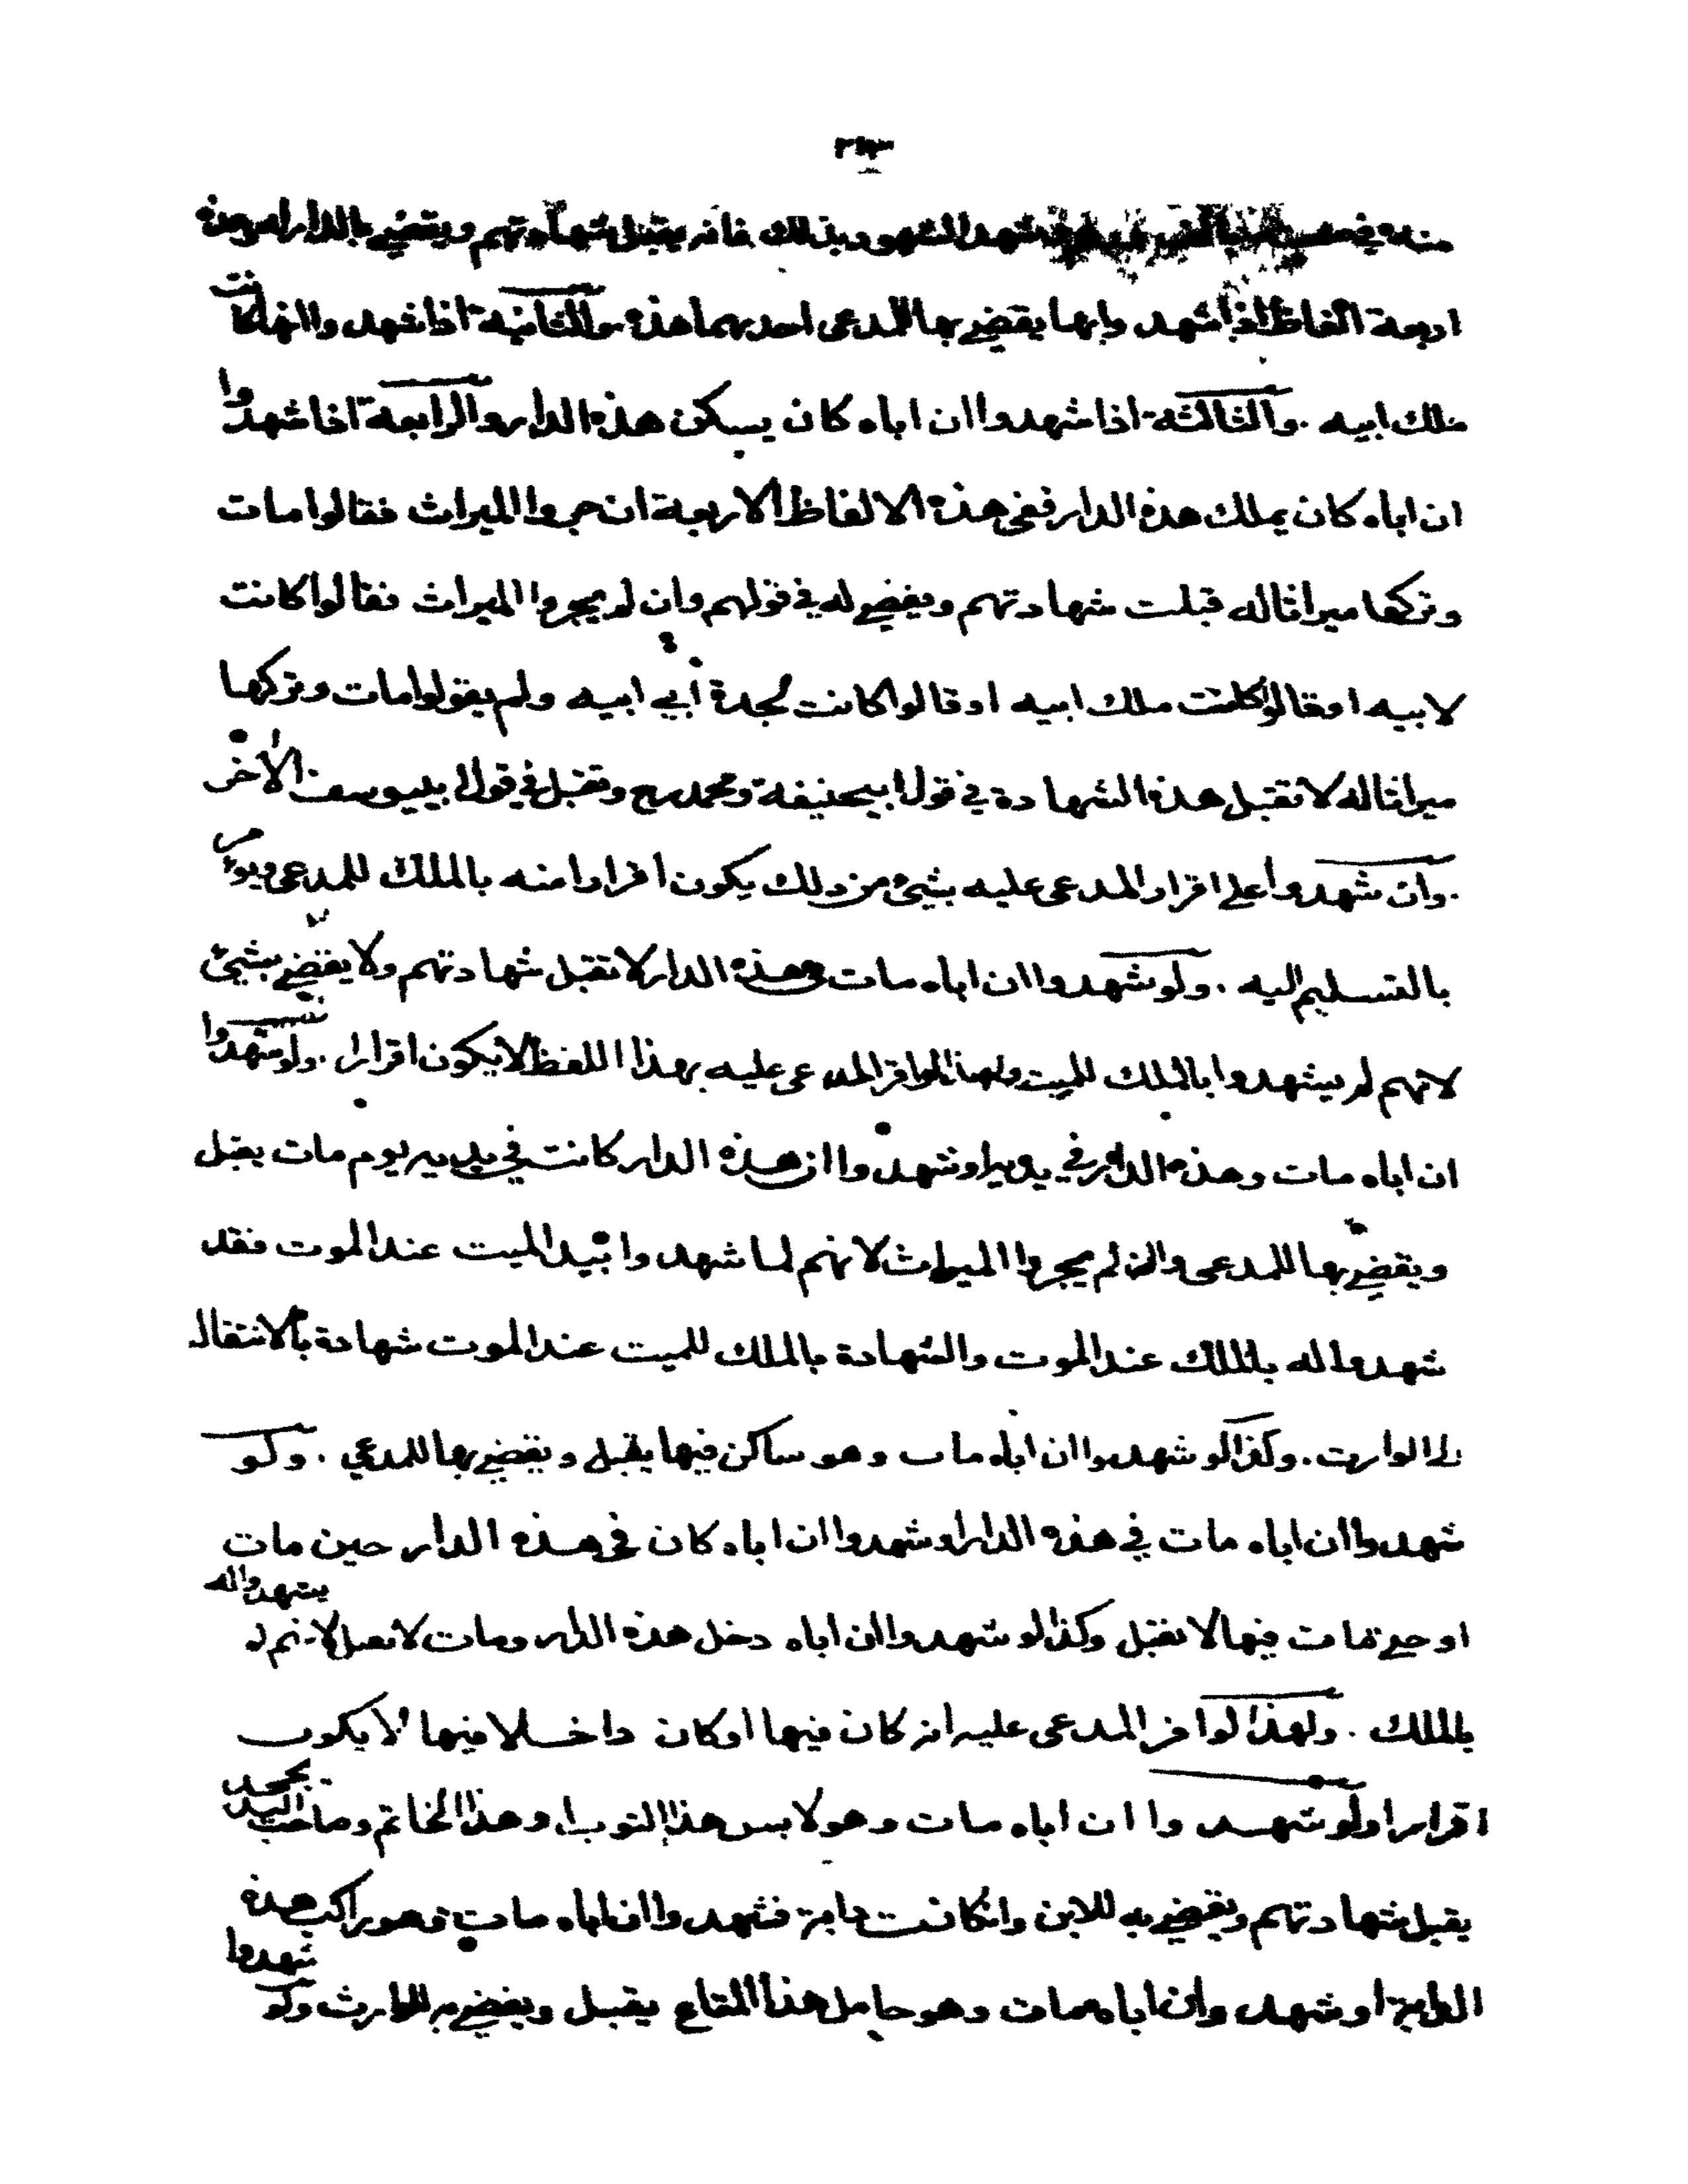 شهد الشهود بذلك فانه يقبل شهادتهم ويقضي بالدار
اربعة الفاظ اذا شهدوا بها يقضي بها للمدعى احديهما هذه والثانية اذا شهدوا انها كانت
ملك ابيه . والثالثة اذا شهدوا ان اباه كان يسكن هذه الدار والرابعة اذا شهدوا
ان اباه كان يملك هذه الدار ففى هذه الالفاظ الاربعة ان جروا الميراث فقالوا مات
وتركها ميراثا له قبلت شهادتهم ويقضى له في قولهم وان لم يجروا الميراث فقالوا كانت
لابيه او قالوا كانت ملك ابيه او قالوا كانت لجدة ابي ابيه ولم يقولوا مات وتركها
ميراثا له لا تقبل هذه الشهادة في قول ابيحنيفة ومحمد رح وتقبل في قول ابييوسف الاخر
. وان شهدوا على اقرار المدعى عليه بشيئ من ذلك يكون اقرارا منه بالملك للمدعى ويؤمر
بالتسليم اليه . ولو شهدوا ان اباه مات في هذه الدار لا تقبل شهادتهم ولا يقضي بشيئ
لانهم لم يشهدوا بالملك للميت ولهذا لو اقر المدعى عليه بهذا اللفظ لا يكون اقرارا . ولو شهدوا
ان اباه مات وهذه الدار في يديه او شهدوا ان هذه الدار كانت في يديه يوم مات يقبل
ويقضي بها للمدعى وان لم يجروا الميراث لانهم لما شهدوا بيد الميت عند الموت فقد
شهدوا له بالملك عند الموت والشهادة بالملك للميت عند الموت شهادة بالانتقال
الى الوارث . وكذا لو شهدوا ان اباه مات وهو ساكن فيها يقبل ويقضي بها للمدعي . ولو
شهدوا ان اباه مات في هذه الدار او شهدوا ان اباه كان في هذه الدار حين مات
او حتى مات فيها لا تقبل وكذا لو شهدوا ان اباه دخل هذه الدار ومات لا تقبل لانهم لم يشهدوا له
بالملك . ولهذا لو اقر المدعى عليه انه كان فيها او كان داخلا فيها لا يكون
اقرارا ولو شهدوا ان اباه مات وهو لابس هذا الثوب او هذا الخاتم وصاحب اليد يجحد
يقبل شهادتهم ويقضي به للابن وان كانت دابة فشهدوا ان اباه مات وهو راكب هذه
الدابة او شهدوا ان اباه مات وهو حامل هذا المتاع يقبل ويقضي به للوارث ولو شهدوا